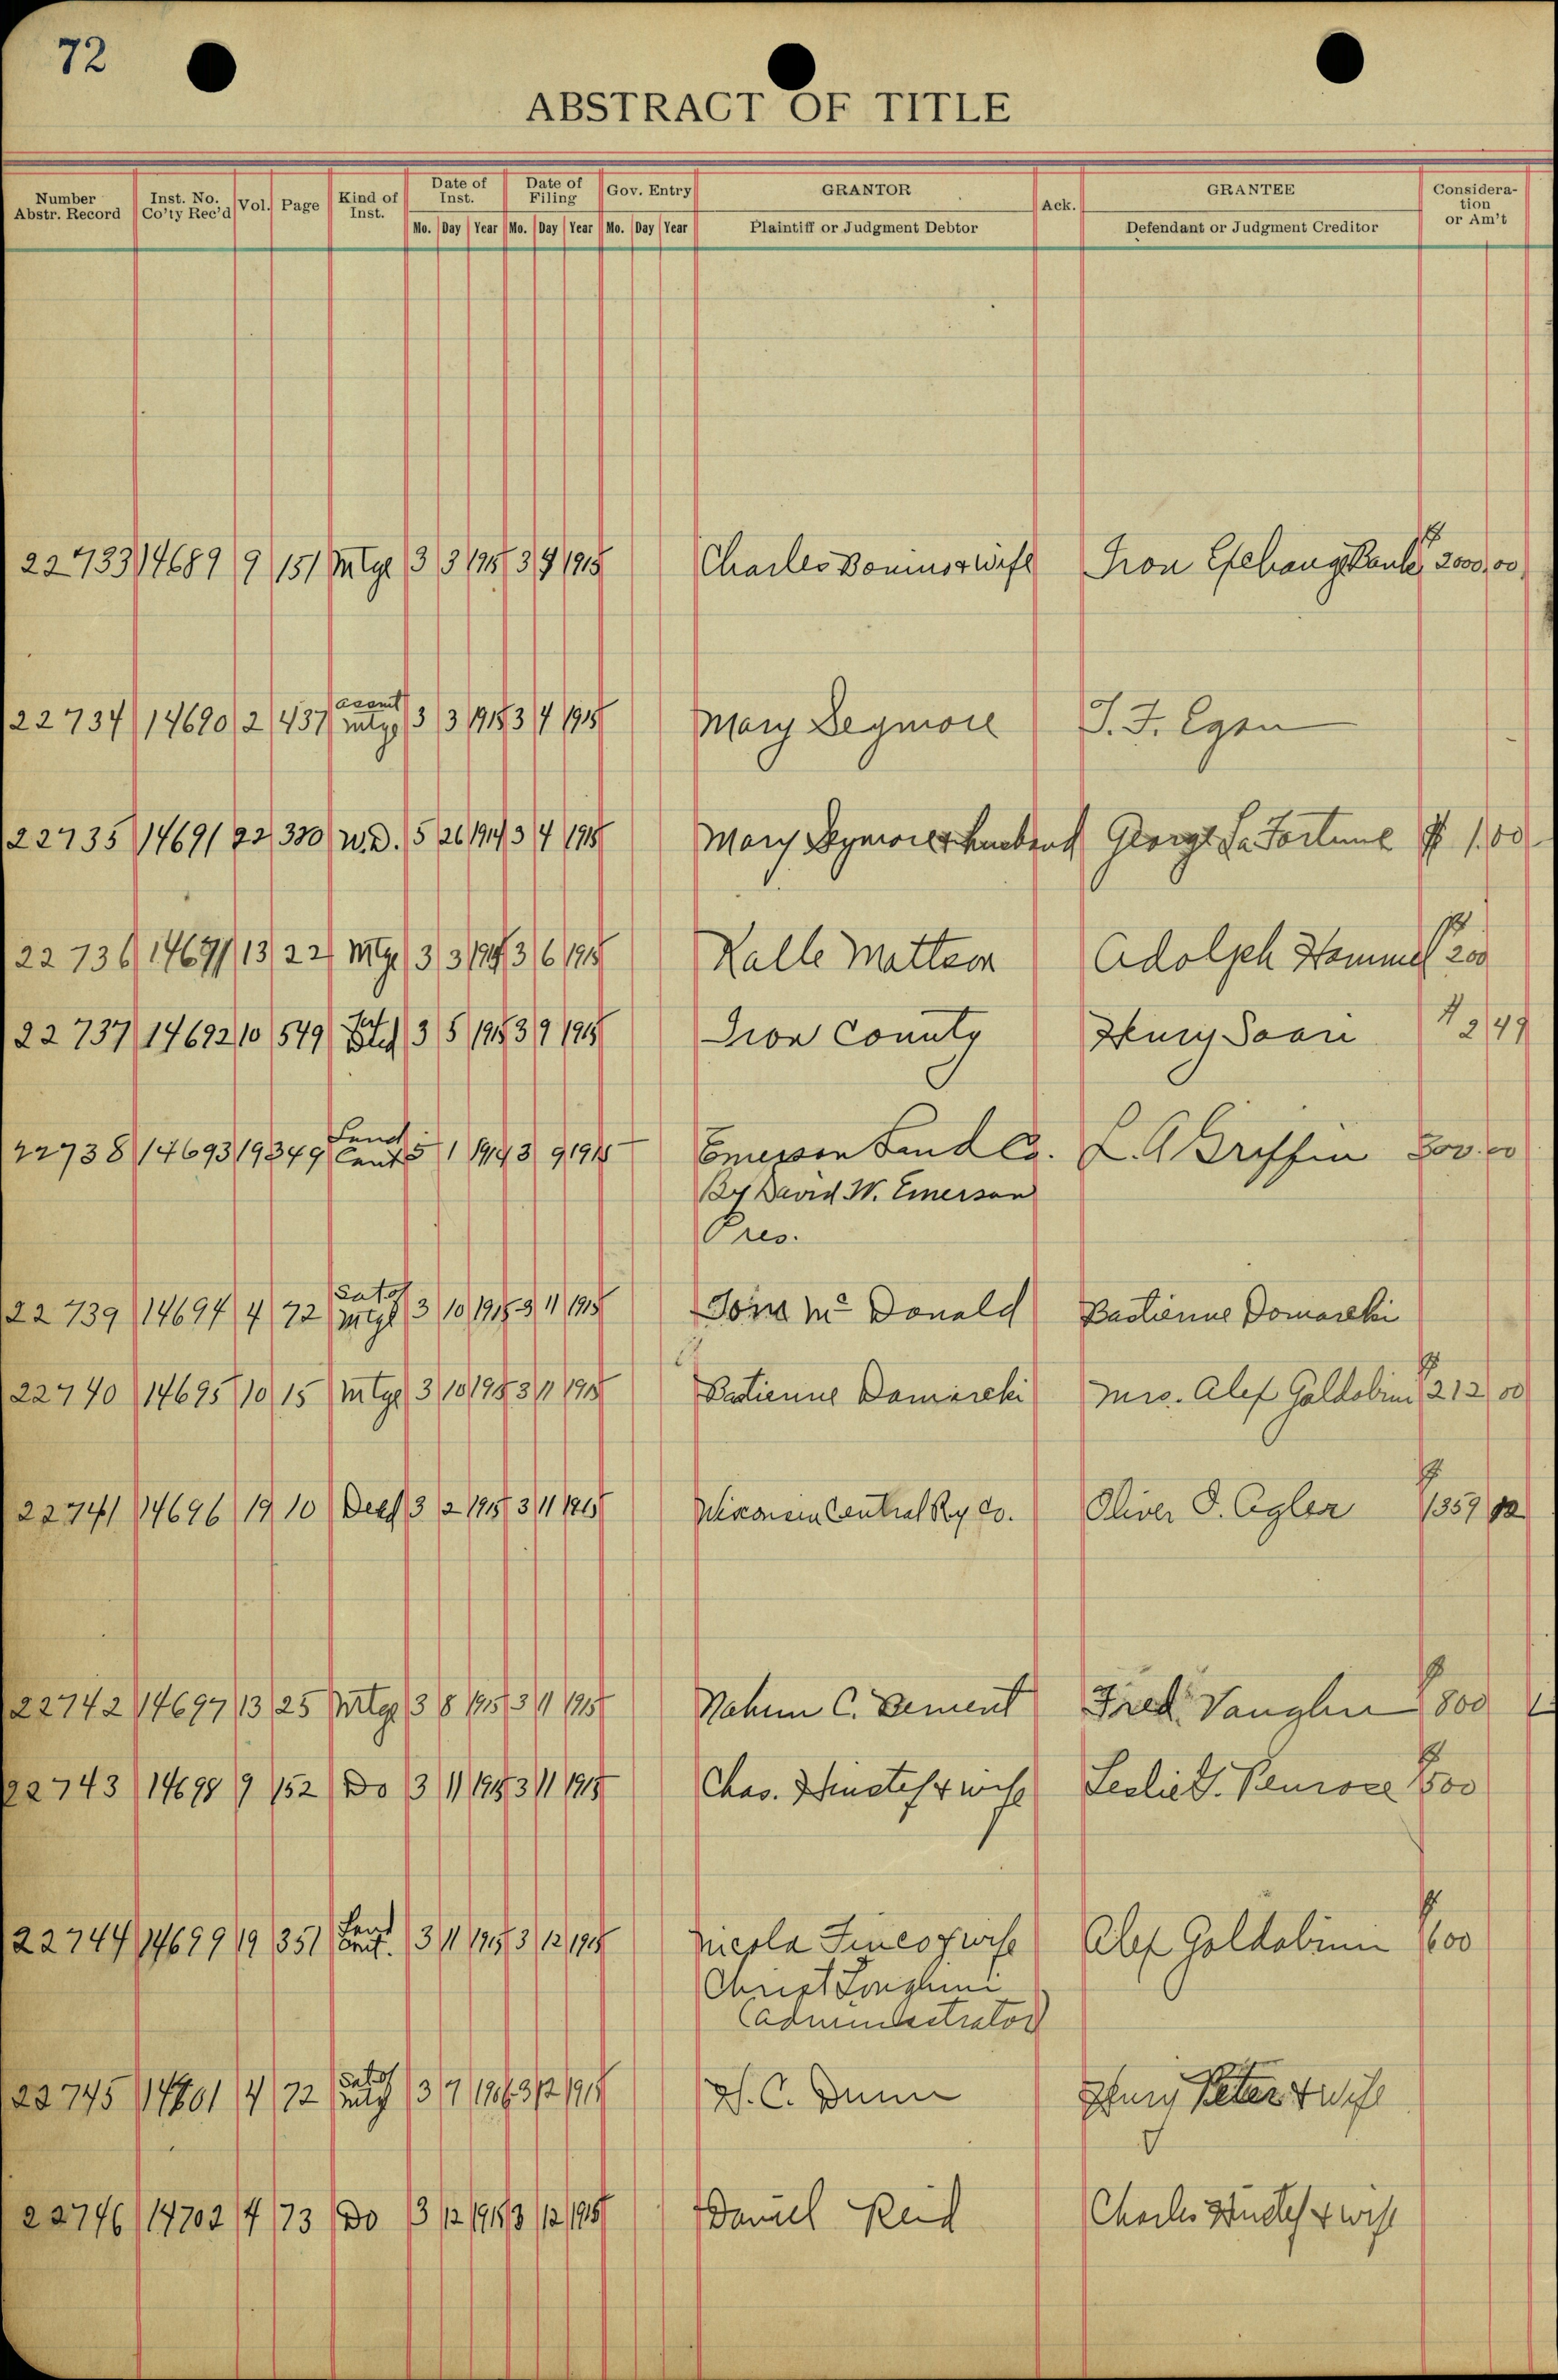 72
ABSTRACT OF TITLE
Number Abstr. Record Inst. No. Co'ty Rec'd Vol. Page Kind of Inst. Date of Inst. Date of Filing Gov. Entry GRANTOR Ack. GRANTEE Consideration or Am't
Mo. Day Year Mo. Day Year Mo. Day Year Plaintiff or Judgment Debtor Defendant or Judgment Creditor
22733 14689 9 151 Mtge 3 3 1915 3 4 1915 Charles Bonino & wife Iron Exchange Bank $2000.00
22734 14690 2 437 assmt mtge 3 3 1915 3 4 1915 Mary Seymore J. F. Egan
22735 14691 22 330 W.D. 5 26 1914 3 4 1915 Mary Seymore & husband George La Fortune $ 1.00
22736 14691 13 22 Mtge 3 3 1915 3 6 1915 Kalle Mattson Adolph Hammel $200
22737 14692 10 549 3 5 1915 3 9 1915 Iron County Henry Saari $ 2 49
22738 14693 19 349 Land Cont 5 1 1914 3 9 1915 Emerson Land Co. L. A Griffin 300.00
By David W. Emerson
Pres.
22739 14694 4 72 Sat of mtge 3 10 1915 3 11 1915 Donald Bastienne Domarcki
22740 14695 10 15 Mtge 3 10 1915 3 11 1915 Bastienne Domarcki Mrs. Alex Galdabini $212 00
22741 14696 19 10 Deed 3 2 1915 3 11 1915 Wisconsin Central Ry Co. Oliver D. Agler $1359 92
22742 14697 13 25 Mtge 3 8 1915 3 11 1915 Nahum C. Dement Fred Vaughn $800
22743 14698 9 152 Do 3 11 1915 3 11 1915 Chas. & wife Leslie S. Penrose $1500
22744 14699 19 351 Land Cont. 3 11 1915 3 12 1915 Nicola Fineo & wife Alex Goldabini $1600
Christ Longhini
Administrator
22745 14701 4 72 Sat of mtg 3 7 1915 3 12 1915 H. C. Dunn Henry Peter & wife
22746 14702 4 73 Do 3 12 1915 3 12 1915 Daniel Reid Charles & wife